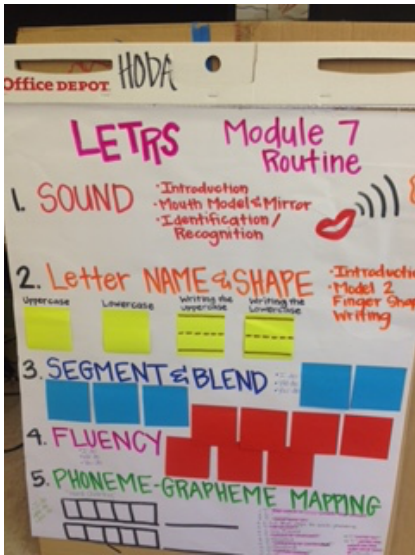 Office DEPOT HODA
LETRS Module 7
Routine
1. SOUND
• Introduction
• Mouth Model & Mirror
• Identification /
Recognition
2. Letter NAME & SHAPE
• Introducti
• Model 2
Finger Shap
Writing
Uppercase
Lowercase
Writing the
uppercase
Writing the
Lowercase
3. SEGMENT & BLEND
4. FLUENCY
5. PHONEME-GRAPHEME MAPPING